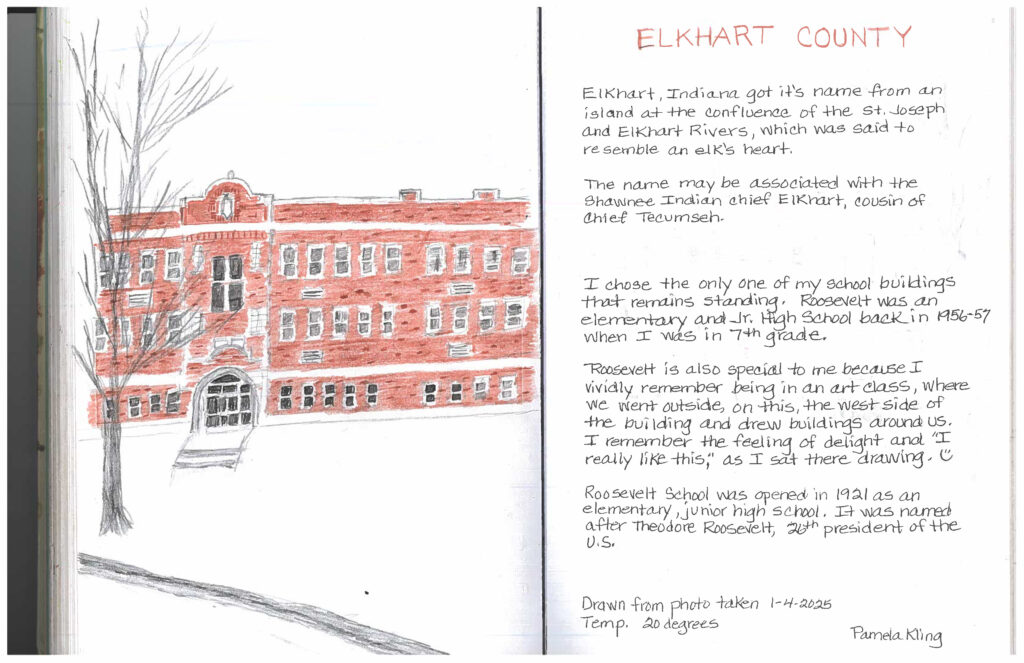 ELKHART COUNTY
Elkhart, Indiana got it's name from an
island at the confluence of the St. Joseph
and Elkhart Rivers, which was said to
resemble an elk's heart.
The name may be associated with the
Shawnee Indian chief Elkhart, cousin of
Chief Tecumseh.
I chose the only one of my school buildings
that remains standing. Roosevelt was an
elementary and Jr. High School back in 1956-57
when I was in 7th grade.
Roosevelt is also special to me because I
vividly remember being in an art class, where
we went outside, on this, the west side of
the building and drew buildings around us.
I remember the feeling of delight and "I
really like this," as I sat there drawing. ☺
Roosevelt School was opened in 1921 as an
elementary, junior high school. It was named
after Theodore Roosevelt, 26th president of the
U.S.
Drawn from photo taken 1-4-2025
Temp. 20 degrees
Pamela Kling